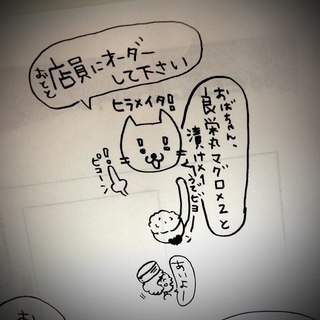 おとと
店員にオーダー
して下さい
ヒラメイタ!!
おばちゃん、
良栄丸マグロ×2と
漬け×1
ピョーン
うでビヨーン
あいよー